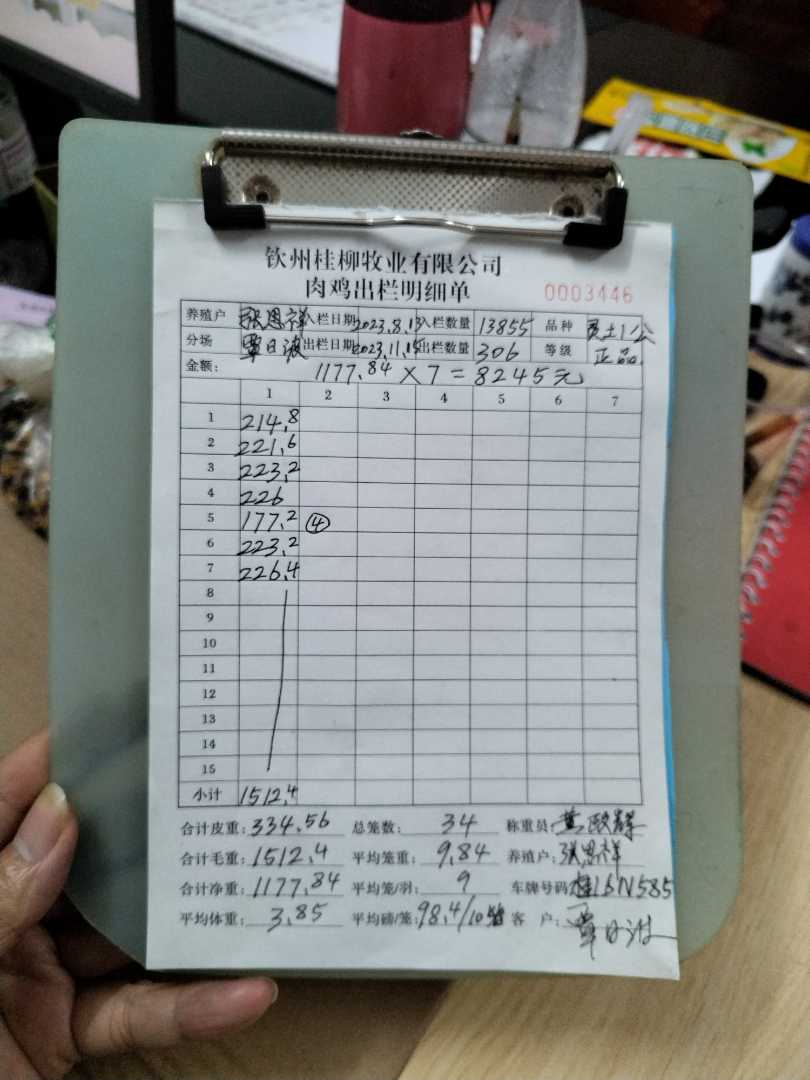 钦州桂柳牧业有限公司
肉鸡出栏明细单 0003446
养殖户 张恩祥 入栏日期 2023.8.13 入栏数量 13855 品种 土1公
分场 覃日波 出栏日期 2023.11.15 出栏数量 306 等级 正品
金额: 1177.84×7=8245元
1 2 3 4 5 6 7
1 214.8
2 221.6
3 223.2
4 226
5 177.2 ④
6 223.2
7 226.4
8
9
10
11
12
13
14
15
小计 1512.4
合计皮重: 334.56 总笼数: 34 称重员:
合计毛重: 1512.4 平均笼重: 9.84 养殖户: 张恩祥
合计净重: 1177.84 平均笼/羽: 9 车牌号码: 桂16N585
平均体重: 3.85 平均磅/笼: 98.4/10 客 户: 覃日波